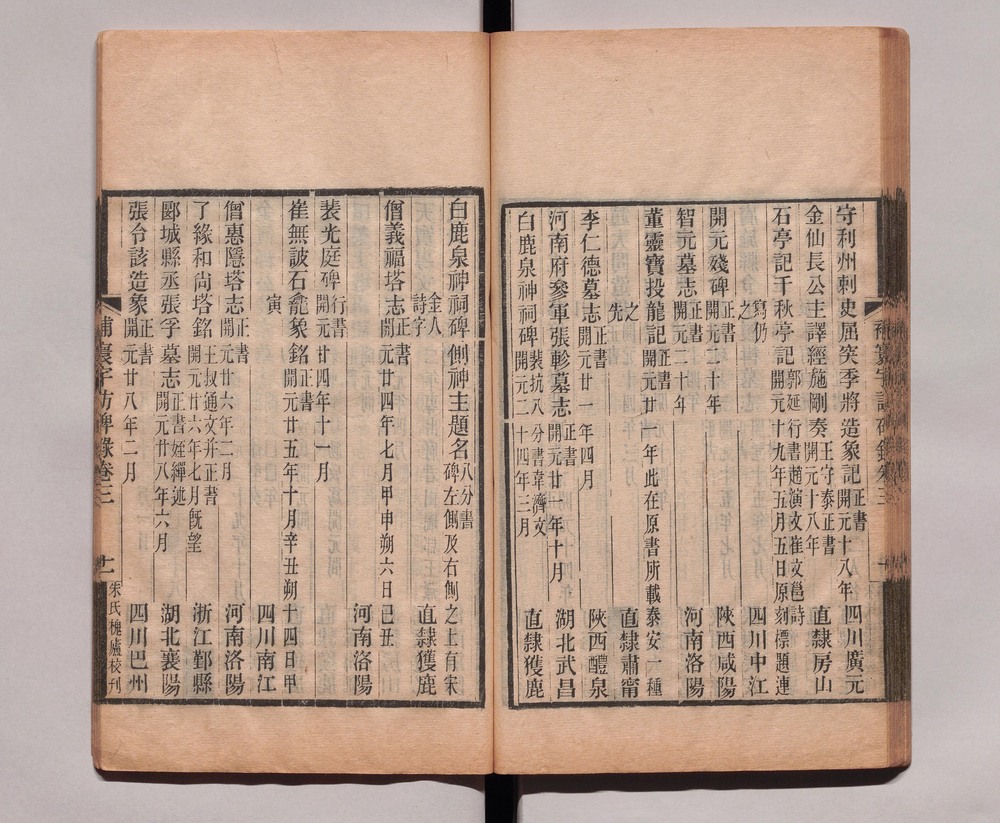 守利州刺史屈突季將造象記 正書 開元十八年 四川廣元
金仙長公主譯經施剛奏 王守泰正書 開元十八年 直隸房山
石亭記千秋亭記 郭延 行書趙演文崔文邕詩 開元十九年五月五日原刻標題連
寫仍之 四川中江
開元殘碑 正書 開元二十年 陝西咸陽
智元墓志 正書 開元二十年 河南洛陽
董靈寶投龍記 正書 開元廿一年此在原書所載泰安一種
之先 直隸肅甯
李仁德墓志 正書 開元廿一年四月 陝西醴泉
河南府參軍張軫墓志 正書 開元廿一年十月 湖北武昌
白鹿泉神祠碑 裴抗八分書韋濟文 開元二十四年三月 直隸獲鹿
白鹿泉神祠碑側神主題名 八分書 碑左側及右側之上有宋
金人詩字 直隸獲鹿
僧義福塔志 正書 開元廿四年七月甲申朔六日己丑
河南洛陽
裴光庭碑 行書 開元廿四年十一月
崔無詖石龕象銘 正書 開元廿五年十月辛丑朔十四日甲
寅 四川南江
僧惠隱塔志 正書 開元廿六年二月 河南洛陽
了緣和尚塔銘 王叔通文并正書 開元廿六年七月既望 浙江鄞縣
郾城縣丞張孚墓志 正書姪繟述 開元廿八年六月 湖北襄陽
張令該造象 正書 開元廿八年二月 四川巴州
補寰宇訪碑錄卷三 十一 朱氏槐廬校刊